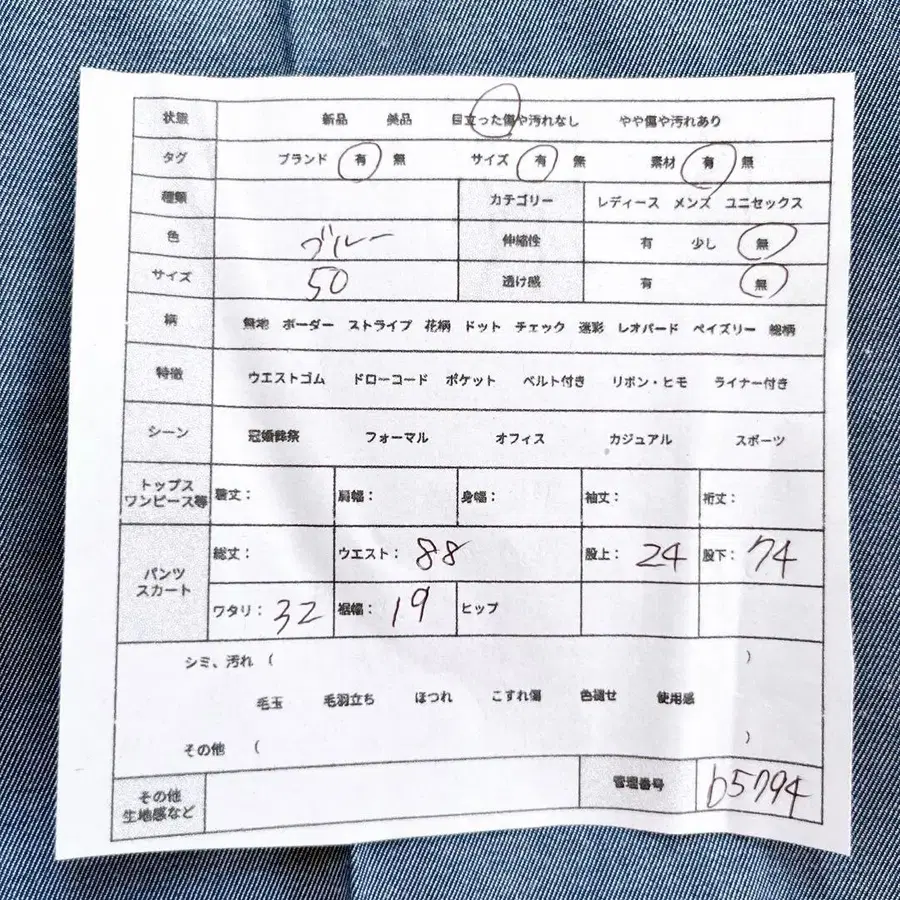 状態 新品 美品 目立った傷や汚れなし やや傷や汚れあり
タグ ブランド 有 無 サイズ 有 無 素材 有 無
種類 カテゴリー レディース メンズ ユニセックス
色 ブルー 伸縮性 有 少し 無
サイズ 50 透け感 有 無
柄 無地 ボーダー ストライプ 花柄 ドット チェック 迷彩 レオパード ペイズリー 総柄
特徴 ウエストゴム ドローコード ポケット ベルト付き リボン・ヒモ ライナー付き
シーン 冠婚葬祭 フォーマル オフィス カジュアル スポーツ
トップス
ワンピース等 着丈： 肩幅： 身幅： 袖丈： 裄丈：
パンツ
スカート
総丈： ウエスト： 88 股上： 24 股下： 74
ワタリ： 32 裾幅： 19 ヒップ
シミ、汚れ （ ）
毛玉 毛羽立ち ほつれ こすれ傷 色褪せ 使用感
その他 （ ）
その他
生地感など
管理番号 b5794